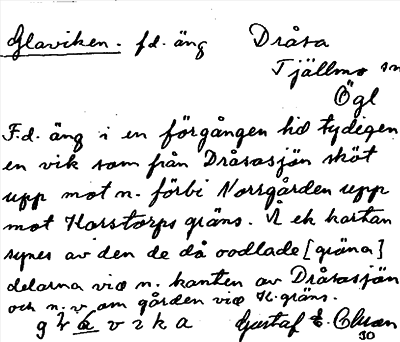 Glaviken. fd. äng Dråsa
Tjällmo sn
Ögl
F.d. äng i en förgången tid tydigen
en vik som från Dråsasjön sköt
upp mot n. förbi Norrgården upp
mot Karstorps gräns. På ek kartan
synes av den de då oodlade [gröna]
delarna vid n. kanten av Dråsasjön
och n.v om gården vid K.gräns.
Gustaf E.
30